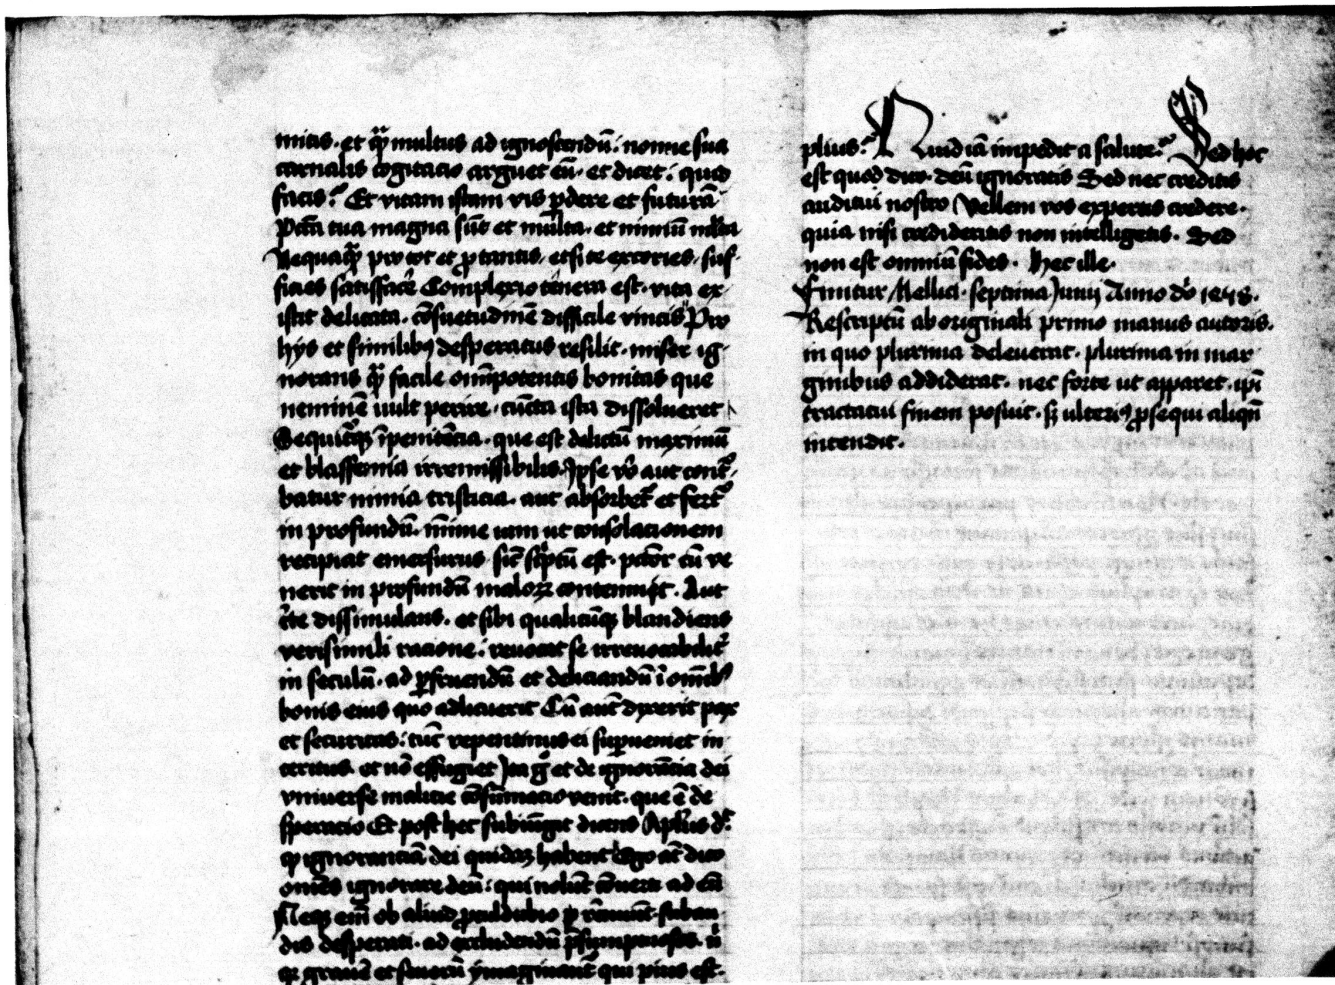 mitis. et q̃ multus ad ignoscendũ. nonne sua
carnalis cogitacio arguet eũ. et dicet: quid
facis? Et vitam istam vis p̱dere et futurã
Pctã tua magna sũt et mlta. et nimiũ mlta
Nequaq̃ pro tot et p̱ tantis. etsi te excories. suf
ficies satisfacẽ Complexio tenera est. vita ex
istit delicata. cõsuetudinẽ difficile vincis Pro
hys et similibꝰ desperatus resilit. miser ig
norans q̃ facile om̃ipotentis bonitas que
neminẽ uult perire. cũcta ista dissolueret
Sequitꝰqꝫ ĩpenitẽcia. que est delictũ maximũ
et blasfemia irremissibilis. Ipse vo aut cont
batur nimia tristicia. aut absorbet et fert
in profundũ. mĩme iam ut consolacionem
recipiat emersurus. sic̃ sc̃ptũ est. pctõr cũ ve
nerit in profundũ maloꝝ contemnit. Aut
c̃te dissimulans. et sibi qualicũqꝫ blandiens
verisimili racione: reuocat se irreuocabilit
in seculũ. ad p̱fruendũ et deliciandũ ĩ om̃ibꝰ
bonis eius quo adlicuerit Cũ aut dyxerit pax
et securitas: tũc repentinus ei sup̱ueniet in
teritus. et nõ effugiet Ita g̃ et de ignorãtia dei
vniuerse malicie cõsumacio venit. que ẽ de
speracio Et post hec subiũgit dicens Apl̃us d̃:
q̱ ignoranciã dei quidaꝫ habent Ego at̃ dico
om̃es ignorare deũ: qui nolũt cõuerti ad eũ
Neqꝫ eĩ ob aliud p̱culdubio
dis desperati. ad
qꝫ grauẽ et seuerũ ymaginant̃ qui pius est.
plius? Quid iã impedit a salute? Sed hoc
est quod dico. deũ ignoratis Sed nec creditis
auditui nostro Vellem vos expertis credere.
quia nisi credideritis non intelligetis. Sed
non est omniũ fides. Hec ille.
Finitur Mellici. septima Iunij Anno dõ 1458.
Rescriptũ ab originali primo manus autoris.
in quo plurima deleuerat. plurima in mar
ginibus addiderat. nec forte ut apparet. ipĩ
tractatui finem posuit. sꝫ ulteriꝰ p̱sequi aliqũ
intendit.